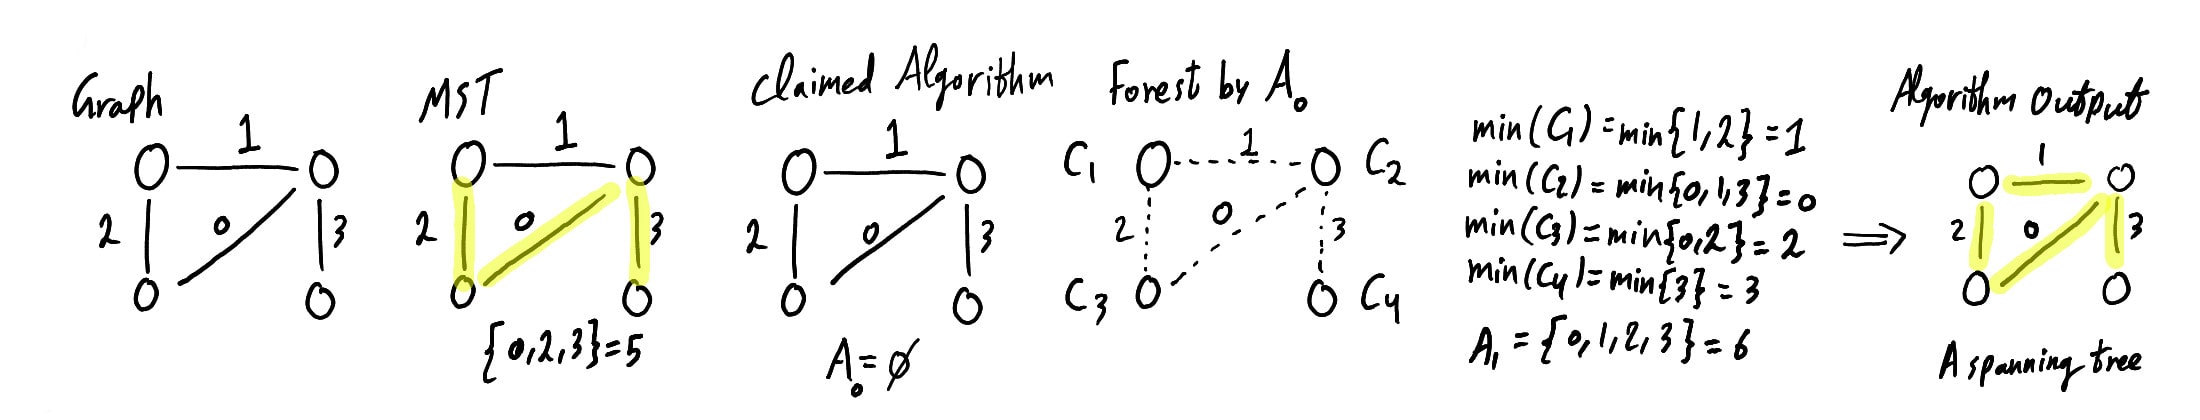 Graph
1
2
0
3
MST
1
2
0
3
{0,2,3}=5
Claimed Algorithm
1
2
0
3
A₀=∅
Forest by A₀
C₁
1
C₂
2
0
3
C₃
C₄
min(C₁)=min{1,2}=1
min(C₂)=min{0,1,3}=0
min(C₃)=min{0,2}=2
min(C₄)=min{3}=3
A₁={0,1,2,3}=6
⇒
Algorithm Output
1
2
0
3
A spanning tree